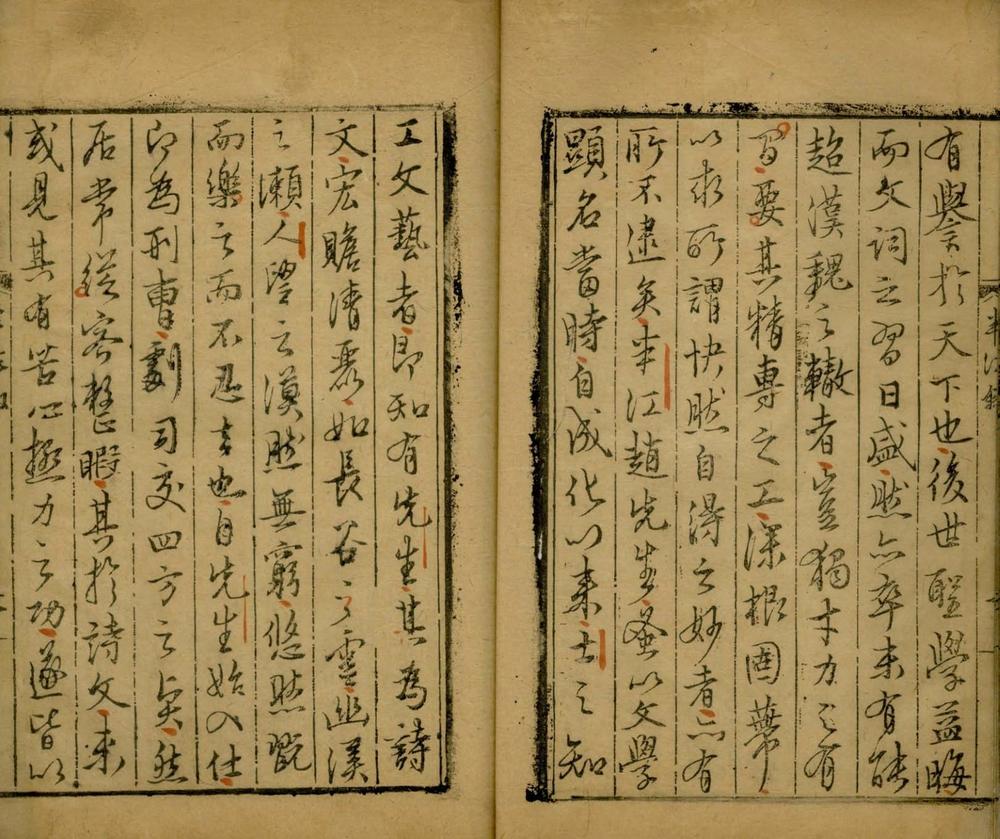 有譽於天下也後世聖學益晦
而文詞之習日盛然亦卒未有能
超漢魏之轍者豈獨才力之有
要其精專之工深根固蔕
以求所謂快然自得之妙者亦有
所不逮矣半江趙先生蚤以文學
顯名當時自成化以來士之知
工文藝者即知有先生其為詩
文宏贍清麗如長谷之雲幽溪
之瀨人望之漠然無窮悠然
而樂之而不忍去也自先生始入仕
即為刑曹劇司交四方之然
居常從容整暇其於詩文未
或見其有苦心極力之功遂皆以
半江